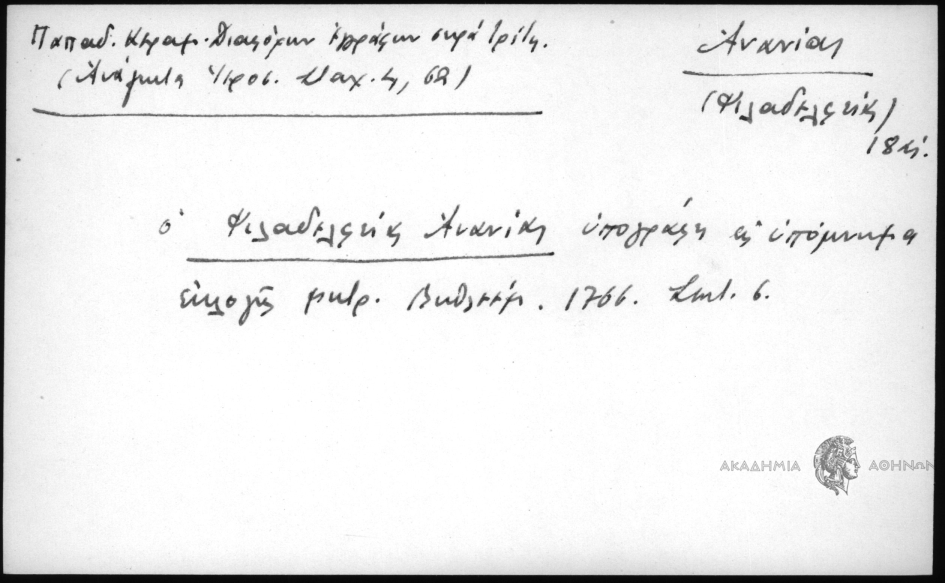 Παπαδ. Κεραμ. Διαφόρων ἐγγράφων σειρὰ τρίτη.
(Ἀνάλεκτα Ἱεροσ. Σταχ. 4, 62)
Ἀνανίας
(Φιλαδελφείας)
18 αἰ.
ὁ Φιλαδελφείας Ἀνανίας ὑπογράφει εἰς ὑπόμνημα
ἐκλογῆς μητρ. Βηθλεέμ. 1766. Σεπτ. 6.
ΑΚΑΔΗΜΙΑ ΑΘΗΝΩΝ